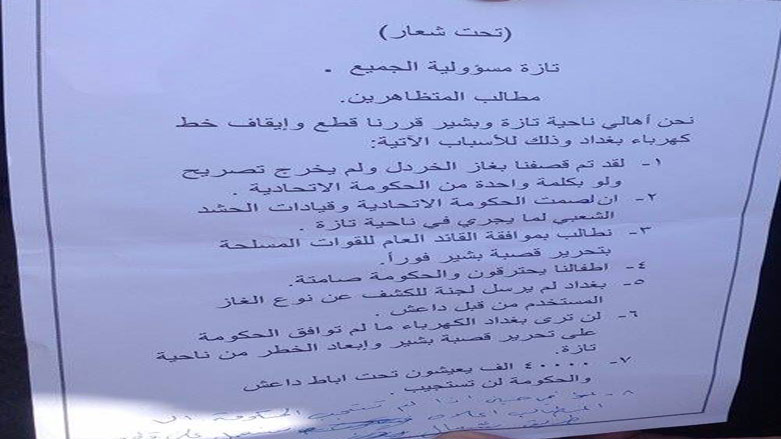 (تحت شعار)
تازة مسؤولية الجميع .
مطالب المتظاهرين.
نحن أهالي ناحية تازة وبشير قررنا قطع وإيقاف خط
كهرباء بغداد وذلك للأسباب الآتية:
١- لقد تم قصفنا بغاز الخردل ولم يخرج تصريح
ولو بكلمة واحدة من الحكومة الاتحادية .
٢- ان لصمت الحكومة الاتحادية وقيادات الحشد
الشعبي لما يجري في ناحية تازة .
٣- نطالب بموافقة القائد العام للقوات المسلحة
بتحرير قصبة بشير فوراً.
٤- اطفالنا يحترقون والحكومة صامتة.
٥- بغداد لم يرسل لجنة للكشف عن نوع الغاز
المستخدم من قبل داعش .
٦- لن ترى بغداد الكهرباء ما لم توافق الحكومة
على تحرير قصبة بشير وإبعاد الخطر من ناحية
تازة.
٧- ٤٠٠٠٠ الف يعيشون تحت اباط داعش
والحكومة لن تستجيب .
٨- اذا لم تستجيب الحكومة